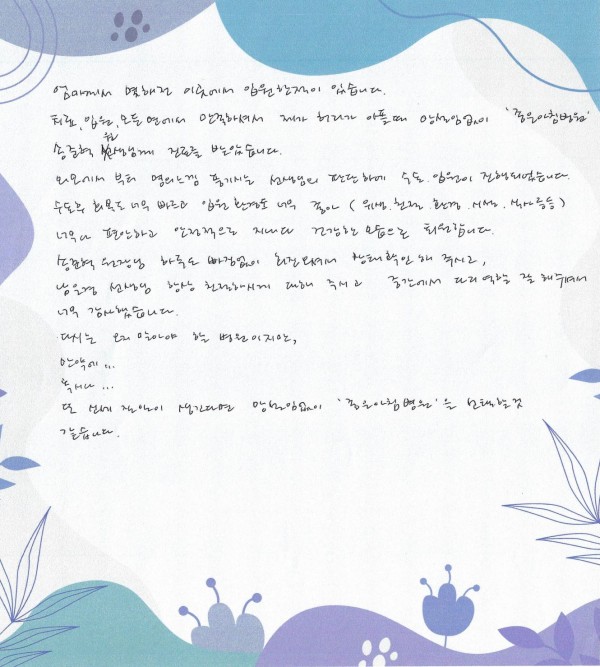 엄마께서 몇해전 이곳에서 입원한적이 있습니다.
치료, 입원, 모든 면에서 만족하셔서 제가 허리가 아플때 망설임없이 '좋은아침병원'
송준혁 원 선생님께 진료를 받았습니다.
외모에서 부터 명의느낌 풍기시는 선생님의 판단하에 수술.입원이 진행되었습니다.
수술후 회복도 너무 빠르고 입원 환경도 너무 좋아 ( 위생.친절.환경.시설.식사등등)
너무나 편안하고 안정적으로 지내다 건강한 모습으로 퇴원합니다.
송준혁 원장님 하루도 빠짐없이 회진오셔서 상태확인해 주시고,
남윤경 선생님 항상 친절하시게 대해 주시고 중간에서 다리역할 잘 해주셔서
너무 감사했습니다.
다시는 오지 말아야 할 병원이지만,
만약에...
혹시나...
또 신체 질환이 생긴다면 망설임없이 '좋은아침병원'을 선택할것
같습니다.